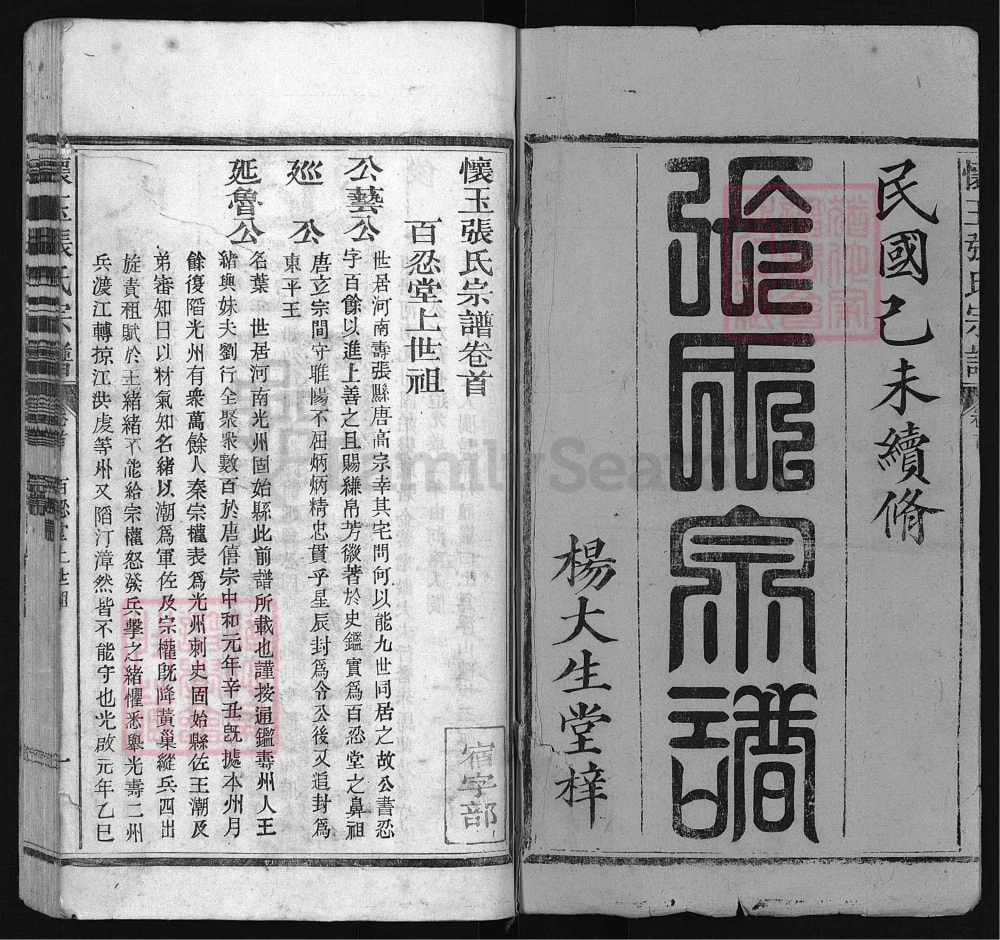 民國己未續脩
張氏宗譜
楊大生堂梓
懷玉張氏宗譜卷首
百忍堂上世祖
公藝公
世居河南壽張縣唐高宗幸其宅問何以能九世同居之故公書忍
字百餘以進上善之且賜縑帛芳徽著於史鑑實為百忍堂之鼻祖
巡公
唐玄宗間守睢陽不屈炳炳精忠貫乎星辰封為令公後又追封為
東平王
延魯公
名葉 世居河南光州固始縣此前譜所載也謹按通鑑壽州人王
緒與妹夫劉行全聚衆數百於唐僖宗中和元年辛丑旣據本州月
餘復陷光州有衆萬餘人秦宗權表爲光州刺史固始縣佐王潮及
弟審知曰以材氣知名緒以潮爲軍佐及宗權旣降黃巢縱兵四出
旋責租賦於王緒緒不能給宗權怒發兵擊之緒懼悉舉光壽二州
兵渡江轉掠江洪虔等州又陷汀漳然皆不能守也光啟元年乙巳
宿字部
懷玉張氏宗譜
卷首
百忍堂上世祖
一
FamilySearch